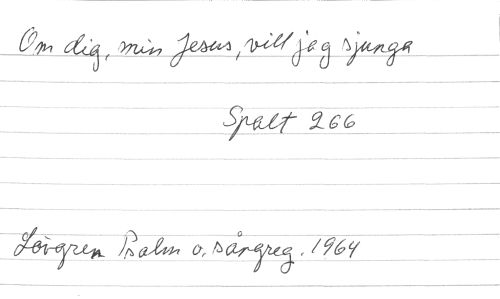 Om dig, min Jesus, vill jag sjunga
Spalt 266
Lövgren Psalm o. sångreg. 1964